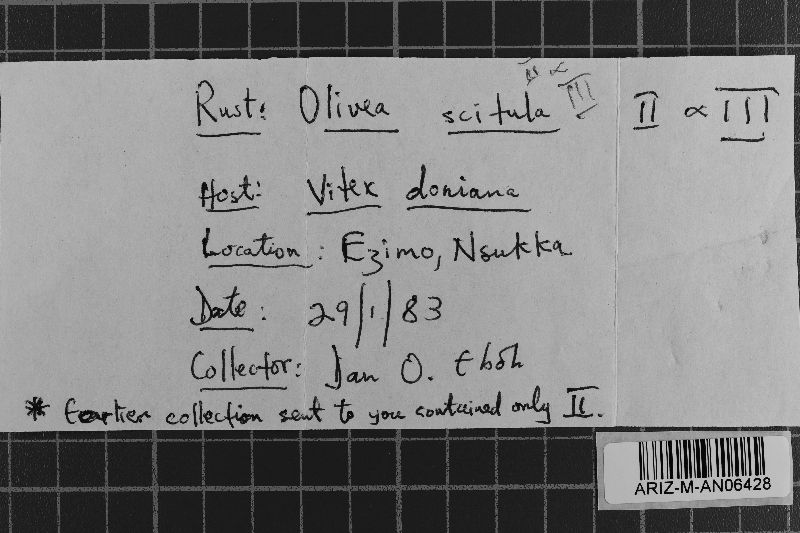 II ∝ III
Rust: Olivea scitula II ∝ III
Host: Vitex doniana
Location: Ezimo, Nsukka
Date: 29/1/83
Collector: Dan O. Eboh
* Earlier collection sent to you contained only II.
ARIZ-M-AN06428